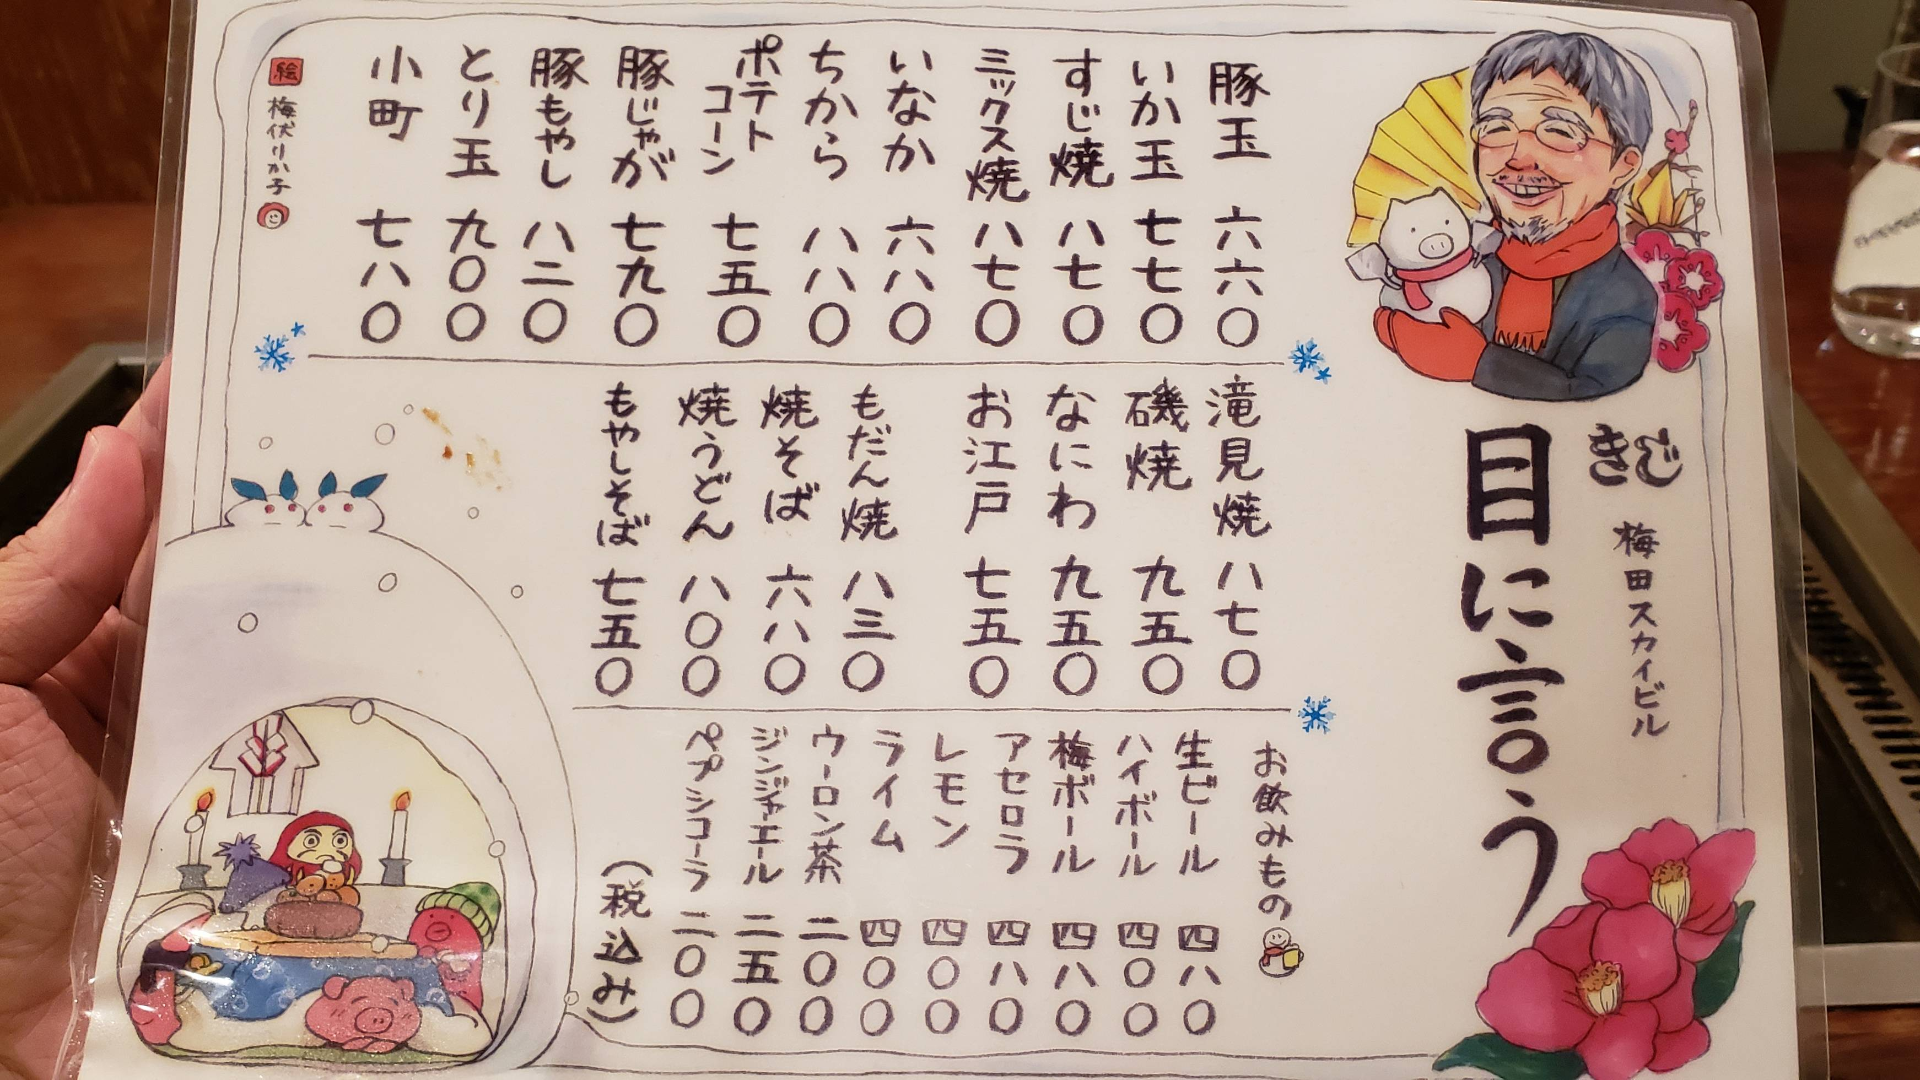 きじ
梅田スカイビル
目に言う
豚玉 六六〇
いか玉 七七〇
すじ焼 八七〇
ミックス焼 八七〇
いなか 六八〇
ちから 八八〇
ポテト
コーン 七五〇
豚じゃが 七九〇
豚もやし 八二〇
とり玉 九〇〇
小町 七八〇
滝見焼 八七〇
磯焼 九五〇
なにわ 九五〇
お江戸 七五〇
もだん焼 八三〇
焼そば 六八〇
焼うどん 八〇〇
もやしそば 七五〇
お飲みもの
生ビール 四八〇
ハイボール 四〇〇
梅ボール 四八〇
アセロラ 四八〇
レモン 四〇〇
ライム 四〇〇
ウーロン茶 二〇〇
ジンジャエール 二五〇
ペプシコーラ 二〇〇
(税込み)
絵 梅伏りか子